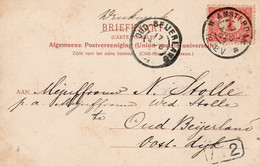 Drukwerk
BRIEFKAART
(CARTE
Algemeene Postvereeniging (Union postale universelle)
Zijde voor het adres bestemd
AMSTERDAM
OUD-BEYERLAND
Aan
Mejuffrouw N. Stolle
p. a. Mejuffrouw Wed Stolle
te
Oud Beijerland
Oost-Dijk
2